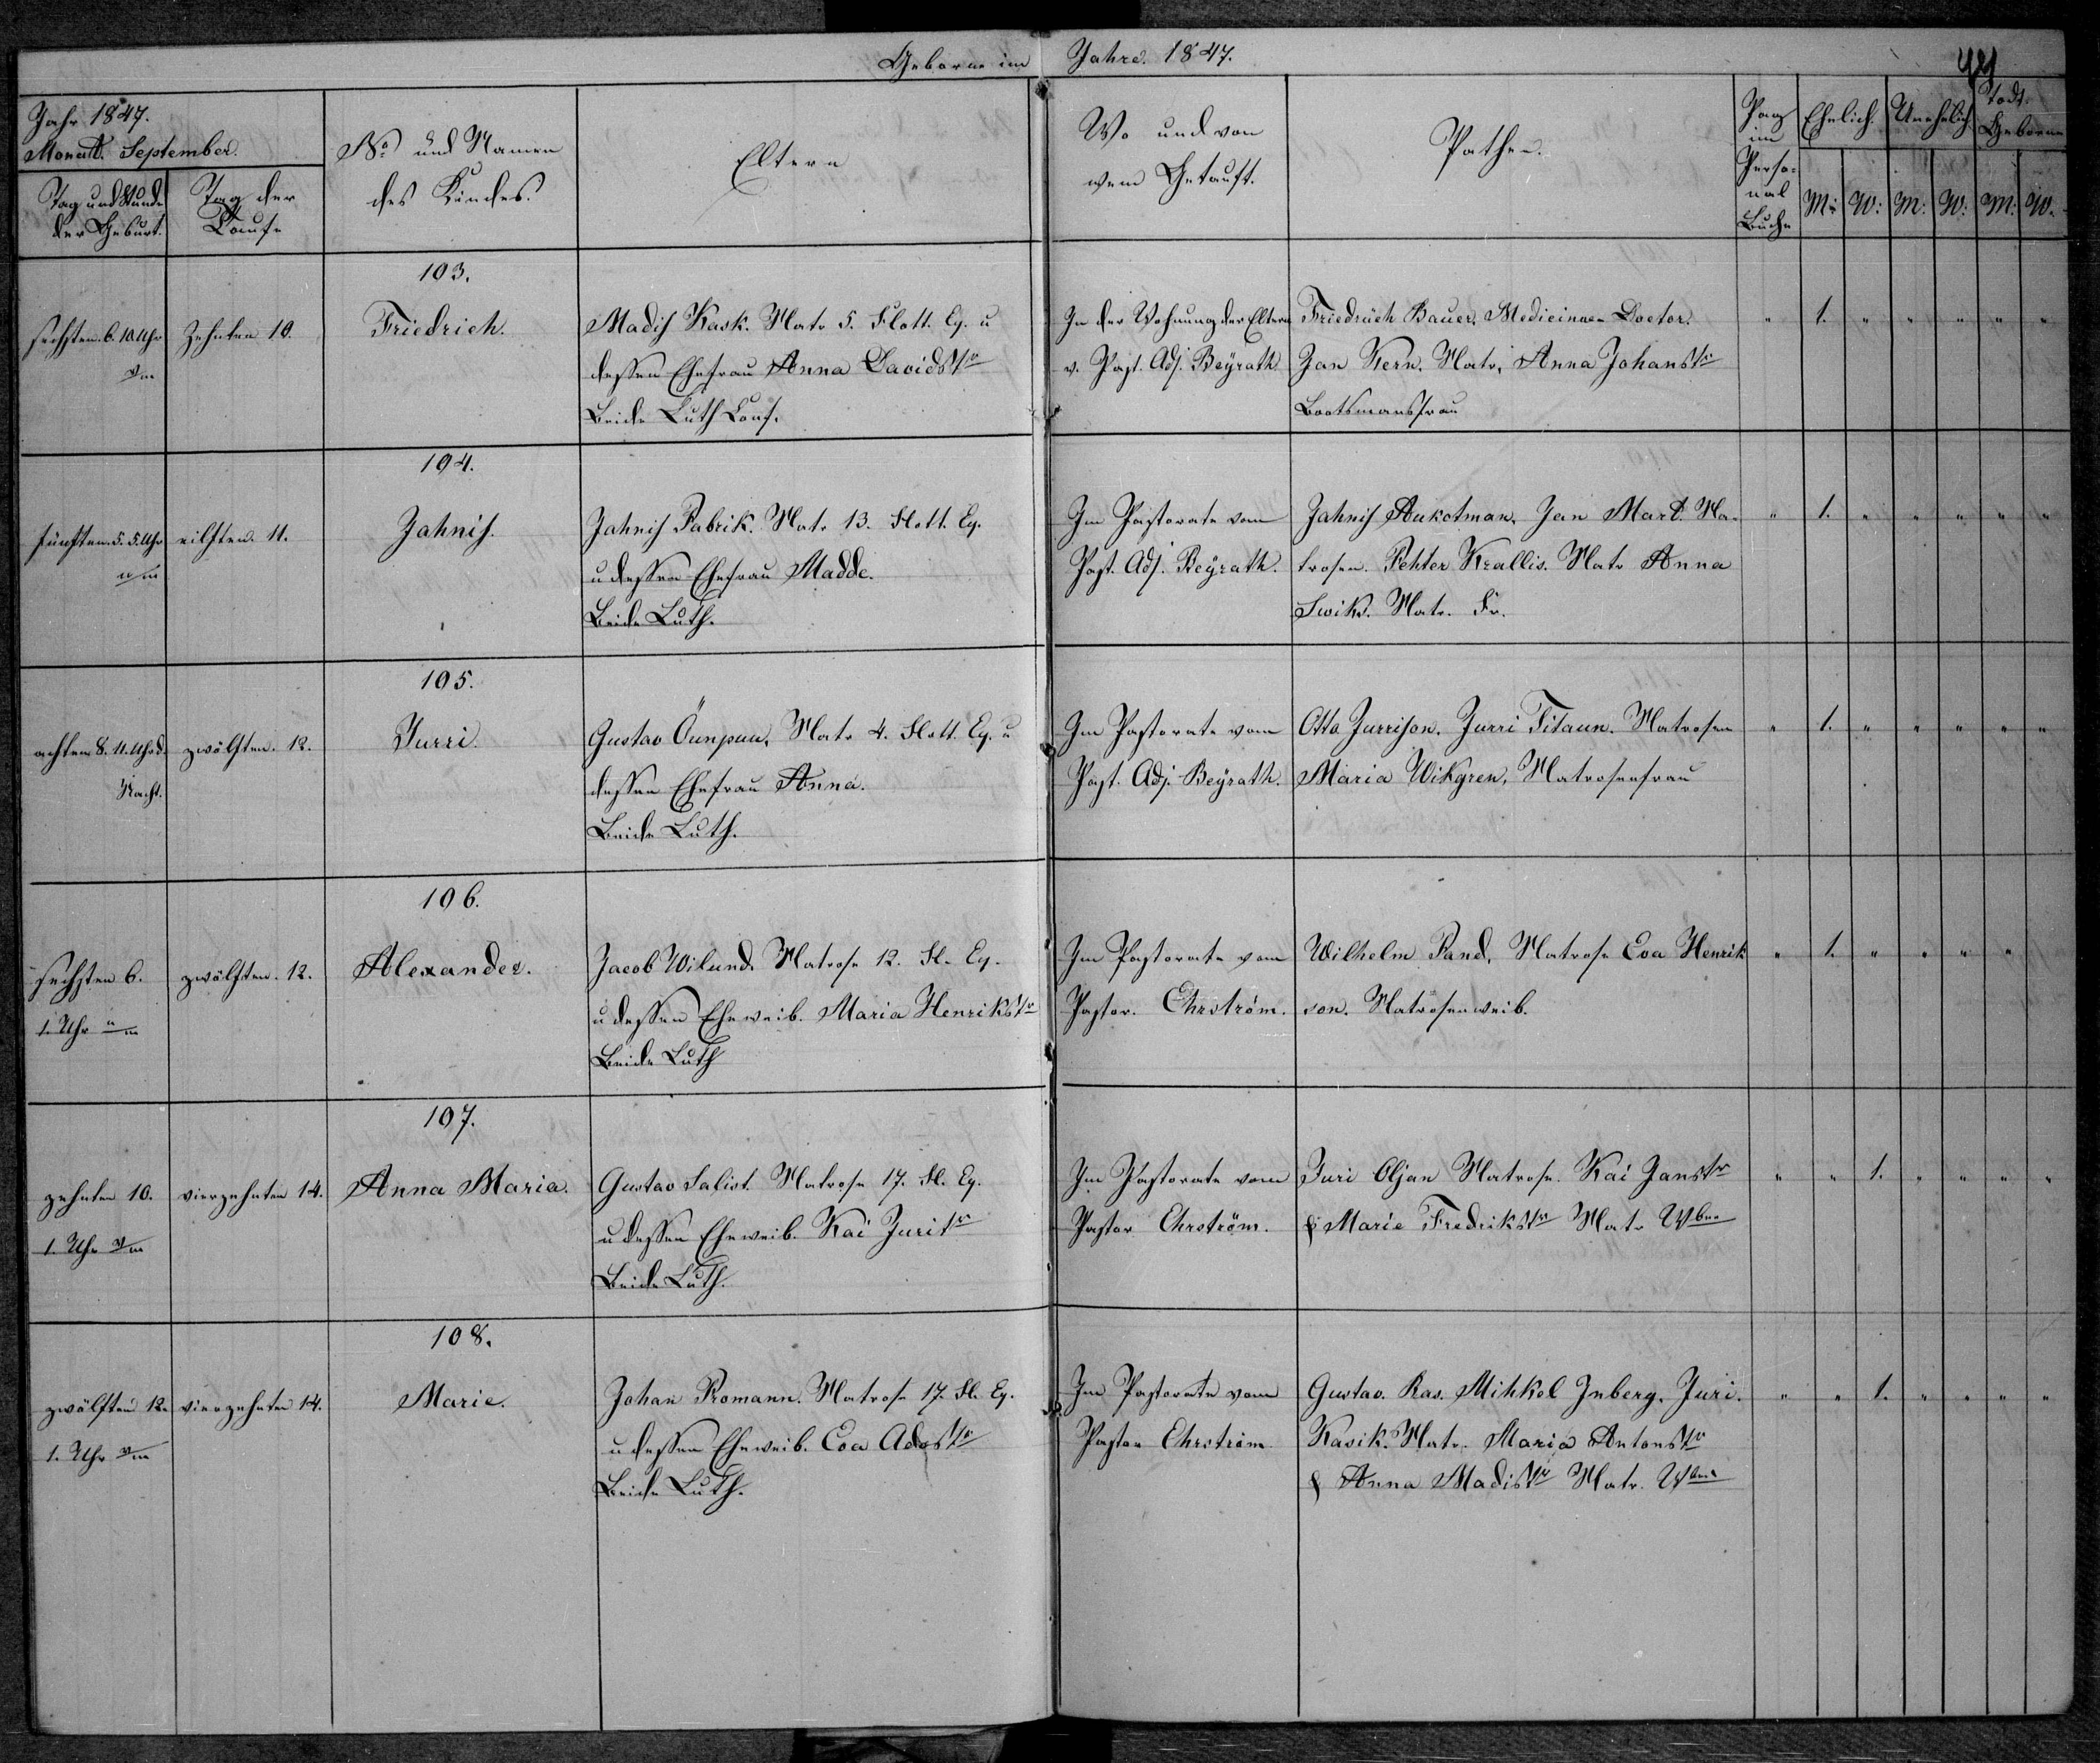 Geborne im Jahre 1847.
Jahr 1847.
Monat. September.
Tag und Stunde
der Geburt.
Tag der
Taufe
No und Namen
des Kindes.
Eltern
Wo und von
wem Getauft.
Pathen.
Pag
im
Perso-
nal
Buche
Ehelich.
Unehelich
Todt.
Geborne
M: W: M: W: M: W.
103.
sechsten. 6. 10 Uhr
Vm
Zehnten 10.
Friedrich.
Madis Kask. Matr 5. Flott. Eq. u
dessen Ehefrau Anna Davidstr
Beide Luth Conf.
In der Wohnung der Eltern
v. Past. Adj. Beÿrath
Friedrich Bauer, Medicinae-Doctor.
Jan Kern. Matr, Anna Johanstr
Bootsmansfrau
" 1. " " " " "
104.
fünften. 5. 5. Uhr
nm
eilften. 11.
Jahnis.
Jahnis Fabrik. Matr 13. Flott. Eq.
u dessen Ehefrau Madde.
Beide Luth.
Im Pastorate vom
Past. Adj. Beÿrath.
Jahnis Aukotman, Jan Mart. Ma-
trosen. Pehter Krallis. Matr Anna
Swik. Matr. Fr.
" 1. " " " " "
105.
achten 8. 11. Uhr d.
Nacht.
zwölften. 12.
Jurri.
Gustav Öunpuu, Matr 4. Flott. Eq. u
dessen Ehefrau Anna.
Beide Luth.
Im Pastorate vom
Past. Adj. Beÿrath.
Otto Jurrison, Jurri Titaun. Matrosen
Maria Wikgren, Matrosenfrau
" 1. " " " " "
106.
sechsten 6.
1. Uhr nm
zwölften. 12.
Alexander.
Jacob Wilund. Matrose 12. Fl. Eq.
u dessen Eheweib. Maria Henrikstr
Beide Luth
Im Pastorate vom
Pastor. Ehrström.
Wilhelm Pand, Matrose Eva Henrik
son. Matrosenweib.
" 1. " " " "
107.
zehnten 10.
1. Uhr Vm
vierzehnten 14.
Anna Maria.
Gustav Salist. Matrose 17. Fl. Eq.
u dessen Eheweib. Kai Juritr
Beide Luth.
Im Pastorate vom
Pastor Ehrström.
Juri Oljan Matrose. Kai Janstr
& Marie Fredrikstr Matr Wber
" " 1. " " " "
108.
zwölften 12.
1. Uhr Vm
vierzehnten 14.
Marie.
Johan Romann. Matrose 17. Fl. Eq.
u dessen Eheweib. Eva Adostr
Beide Luth.
Im Pastorate vom
Pastor Ehrström
Gustav. Ras. Mihkel Inberg. Juri.
Kasik. Matr. Maria Antonstr
& Anna Madistr Matr. Wber
" " 1. " " " "